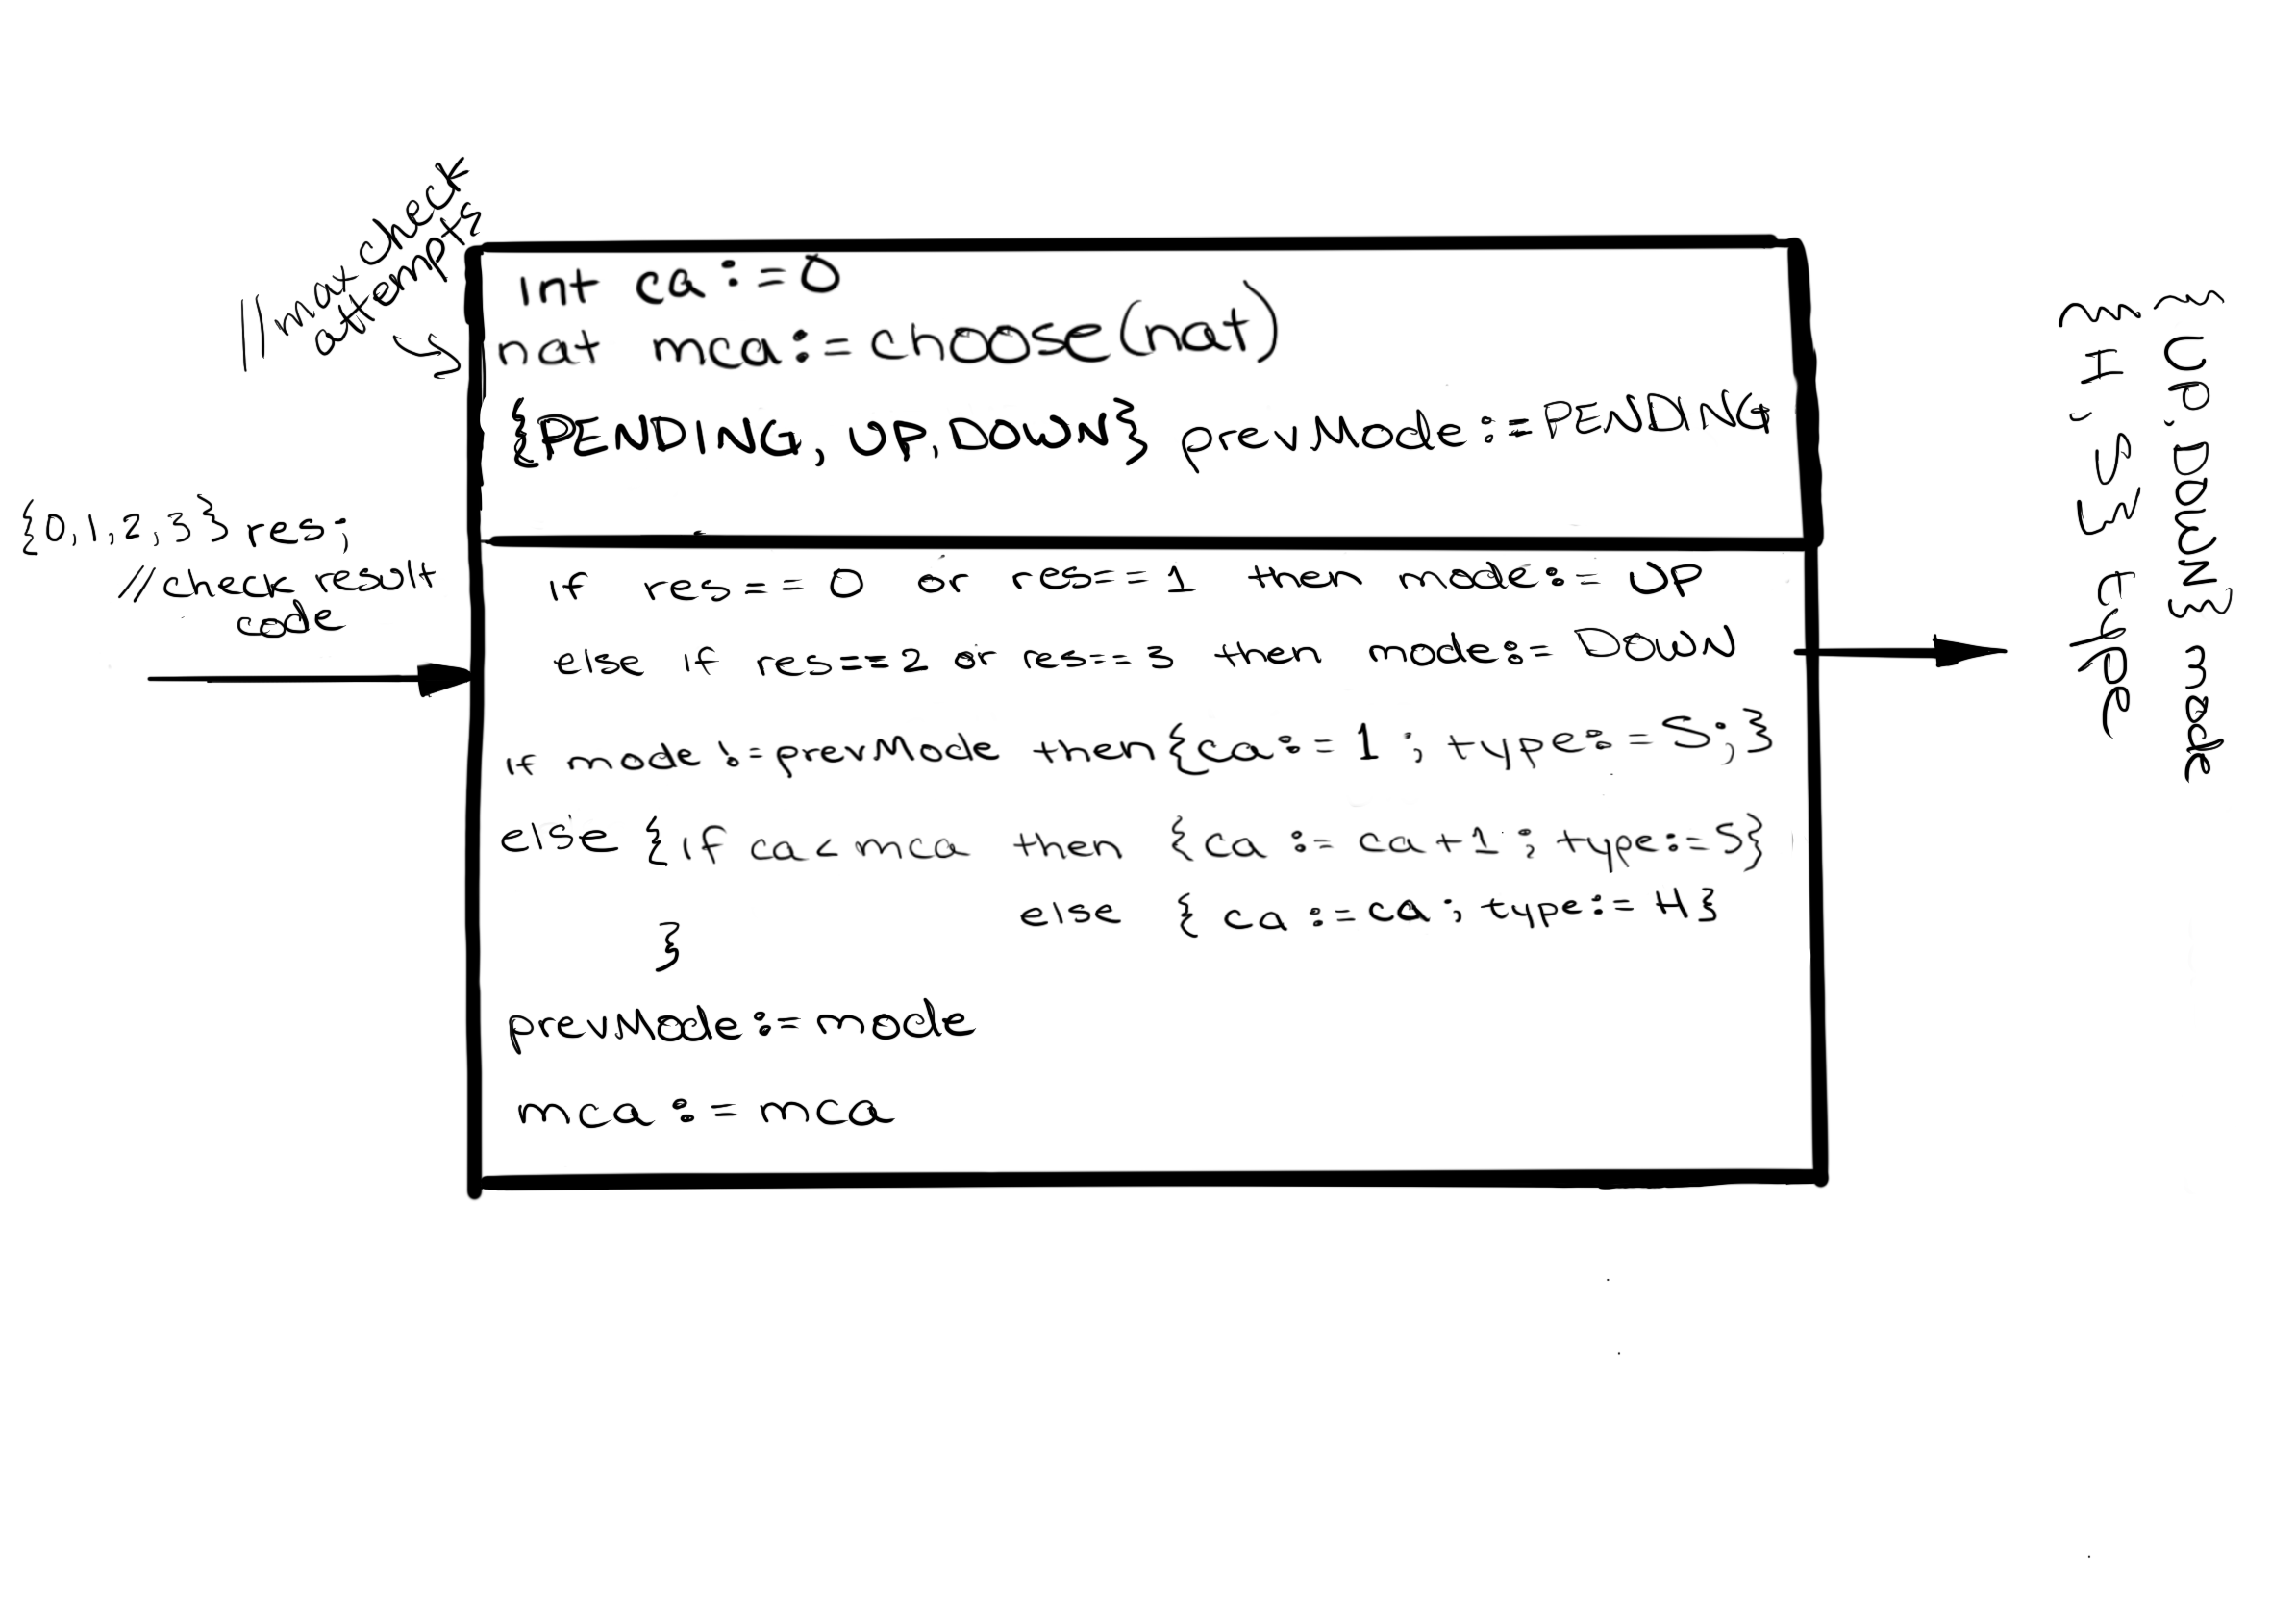 //max check
attempts
int ca := 0
nat mca := choose(nat)
{PENDING, UP, DOWN} prevMode := PENDING
{0,1,2,3} res;
//check result
code
if res == 0 or res == 1 then mode := UP
else if res == 2 or res == 3 then mode := DOWN
if mode != prevMode then {ca := 1 ; type := S;}
else {if ca < mca then {ca := ca+1 ; type := S}
else { ca := ca ; type := H}
}
prevMode := mode
mca := mca
{UP, DOWN} mode
{H, S} type